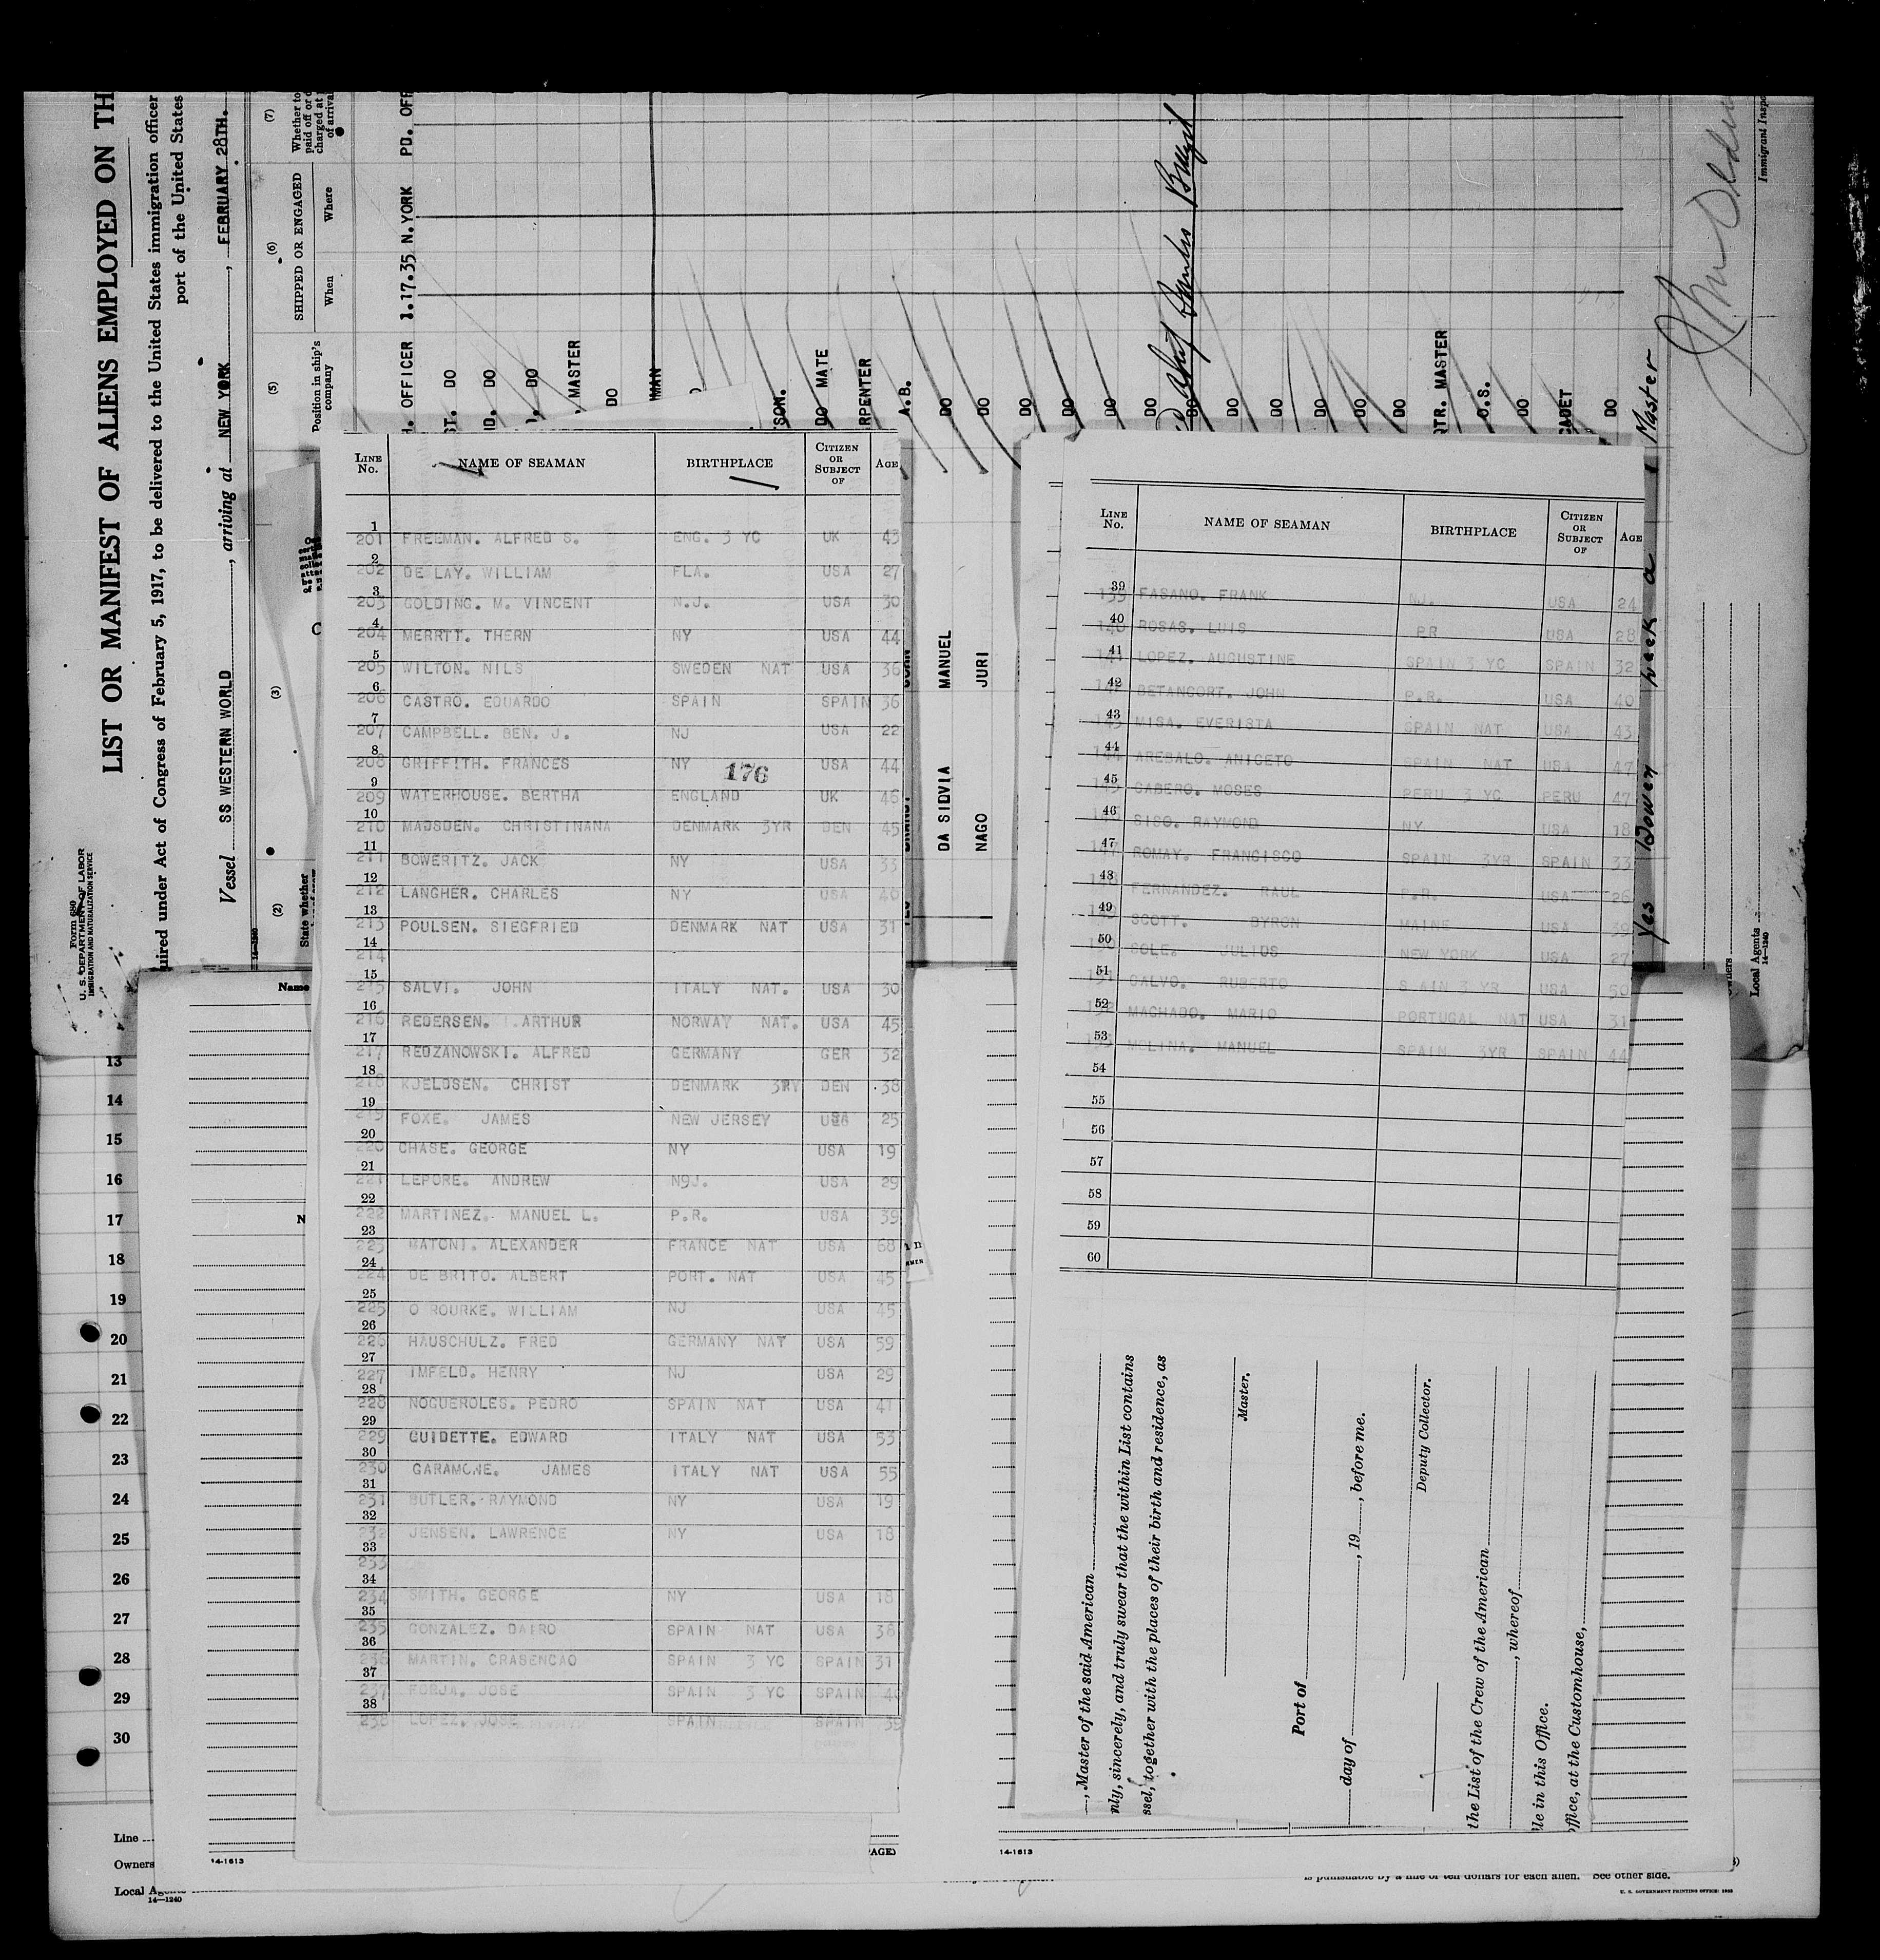 LIST OR MANIFEST OF ALIENS EMPLOYED ON TH
uired under Act of Congress of February 5, 1917, to be delivered to the United States immigration officer
port of the United States
Vessel SS WESTERN WORLD, arriving at NEW YORK, FEBRUARY 28TH.
Form 680
U. S. DEPARTMENT OF LABOR
IMMIGRATION AND NATURALIZATION SERVICE
(2) (3) (5) (6) (7)
State whether
Position in ship's company
SHIPPED OR ENGAGED
When Where
Whether to
paid off or
charged at
of arrival
OFFICER 1.17.35 N.YORK PD. OFF
ST. DO
ND. DO
DO
MASTER
DO
DO MATE
RPENTER
A.B.
DO
DO
DO
DO
DO
DO
DO
DO
DO
DO
DO
DO
QTR. MASTER
O.S.
DO
CADET
DO
MANUEL
JURI
DA SIDVIA
NAGO
Yes Bowen
Master
Immigrant Inspe
Owners
Local Agents
14-1240
LINE No. NAME OF SEAMAN BIRTHPLACE CITIZEN OR SUBJECT OF AGE
1 201 FREEMAN. ALFRED S. ENG. 3 YC UK 43
2 202 DE LAY. WILLIAM FLA. USA 27
3 203 GOLDING. M. VINCENT N.J. USA 30
4 204 MERRTT. THERN NY USA 44
5 205 WILTON. NILS SWEDEN NAT USA 36
6 206 CASTRO. EDUARDO SPAIN SPAIN 36
7 207 CAMPBELL. BEN. J. NJ USA 22
8 208 GRIFFITH. FRANCES NY USA 44
176
9 209 WATERHOUSE. BERTHA ENGLAND UK 46
10 210 MADSDEN. CHRISTINANA DENMARK 3YR DEN 45
11 211 BOWERITZ. JACK NY USA 33
12 212 LANGHER. CHARLES NY USA 40
13 213 POULSEN. SIEGFRIED DENMARK NAT USA 31
14 214
15 215 SALVI. JOHN ITALY NAT. USA 30
16 216 REDERSEN. ARTHUR NORWAY NAT. USA 45
17 217 REDZANOWSKI. ALFRED GERMANY GER 32
18 218 KJELDSEN. CHRIST DENMARK 3RY DEN 38
19 219 FOXE. JAMES NEW JERSEY USA 25
20 220 CHASE. GEORGE NY USA 19
21 221 LEPORE. ANDREW N9J. USA 29
22 222 MARTINEZ. MANUEL L. P.R. USA 39
23 223 MATONI. ALEXANDER FRANCE NAT USA 68
24 224 DE BRITO. ALBERT PORT. NAT USA 45
25 225 O ROURKE. WILLIAM NJ USA 45
26 226 HAUSCHULZ. FRED GERMANY NAT USA 59
27 227 IMFELD. HENRY NJ USA 29
28 228 NOGUEROLES. PEDRO SPAIN NAT USA 41
29 229 GUIDETTE. EDWARD ITALY NAT USA 53
30 230 GARAMONE. JAMES ITALY NAT USA 55
31 231 BUTLER. RAYMOND NY USA 19
32 232 JENSEN. LAWRENCE NY USA 18
33 233
34 234 SMITH. GEORGE NY USA 18
35 235 GONZALEZ. DAIRO SPAIN NAT USA 38
36 236 MARTIN. CRASENCAO SPAIN 3 YC SPAIN 31
37 237 FORJA. JOSE SPAIN 3 YC SPAIN 40
38 238 LOPEZ. JOSE SPAIN SPAIN 39
LINE No. NAME OF SEAMAN BIRTHPLACE CITIZEN OR SUBJECT OF AGE
39 FASANO. FRANK NJ. USA 24
40 ROSAS. LUIS PR USA 28
41 LOPEZ. AUGUSTINE SPAIN 3 YC SPAIN 32
42 BETANCORT. JOHN P.R. USA 40
43 MISA. EVERISTA SPAIN NAT USA 43
44 AREBALO. ANICETO SPAIN NAT USA 47
45 CABERO. MOSES PERU 3 YC PERU 47
46 SISO. RAYMOND NY USA 18
47 ROMAY. FRANCISCO SPAIN 3YR SPAIN 33
48 FERNANDEZ. RAUL P.R. USA 26
49 SCOTT. BYRON MAINE USA 39
50 COLE. JULIUS NEW YORK USA 27
51 CALVO. RUBERTO SPAIN 3 YR USA 50
52 MACHADO. MARIO PORTUGAL NAT USA 31
53 MOLINA. MANUEL SPAIN 3YR SPAIN 44
54
55
56
57
58
59
60
, Master of the said American
nly, sincerely, and truly swear that the within List contains
ssel, together with the places of their birth and residence, as
Master.
Port of
day of , 19 , before me.
Deputy Collector.
the List of the Crew of the American
, whereof
le in this Office.
ffice, at the Customhouse,
Name
N
13
14
15
16
17
18
19
20
21
22
23
24
25
26
27
28
29
30
Line
Owners
Local Agents
14—1240
14-1613
AGE)
14-1613
is punishable by a fine of ten dollars for each alien. See other side.
U. S. GOVERNMENT PRINTING OFFICE: 1932